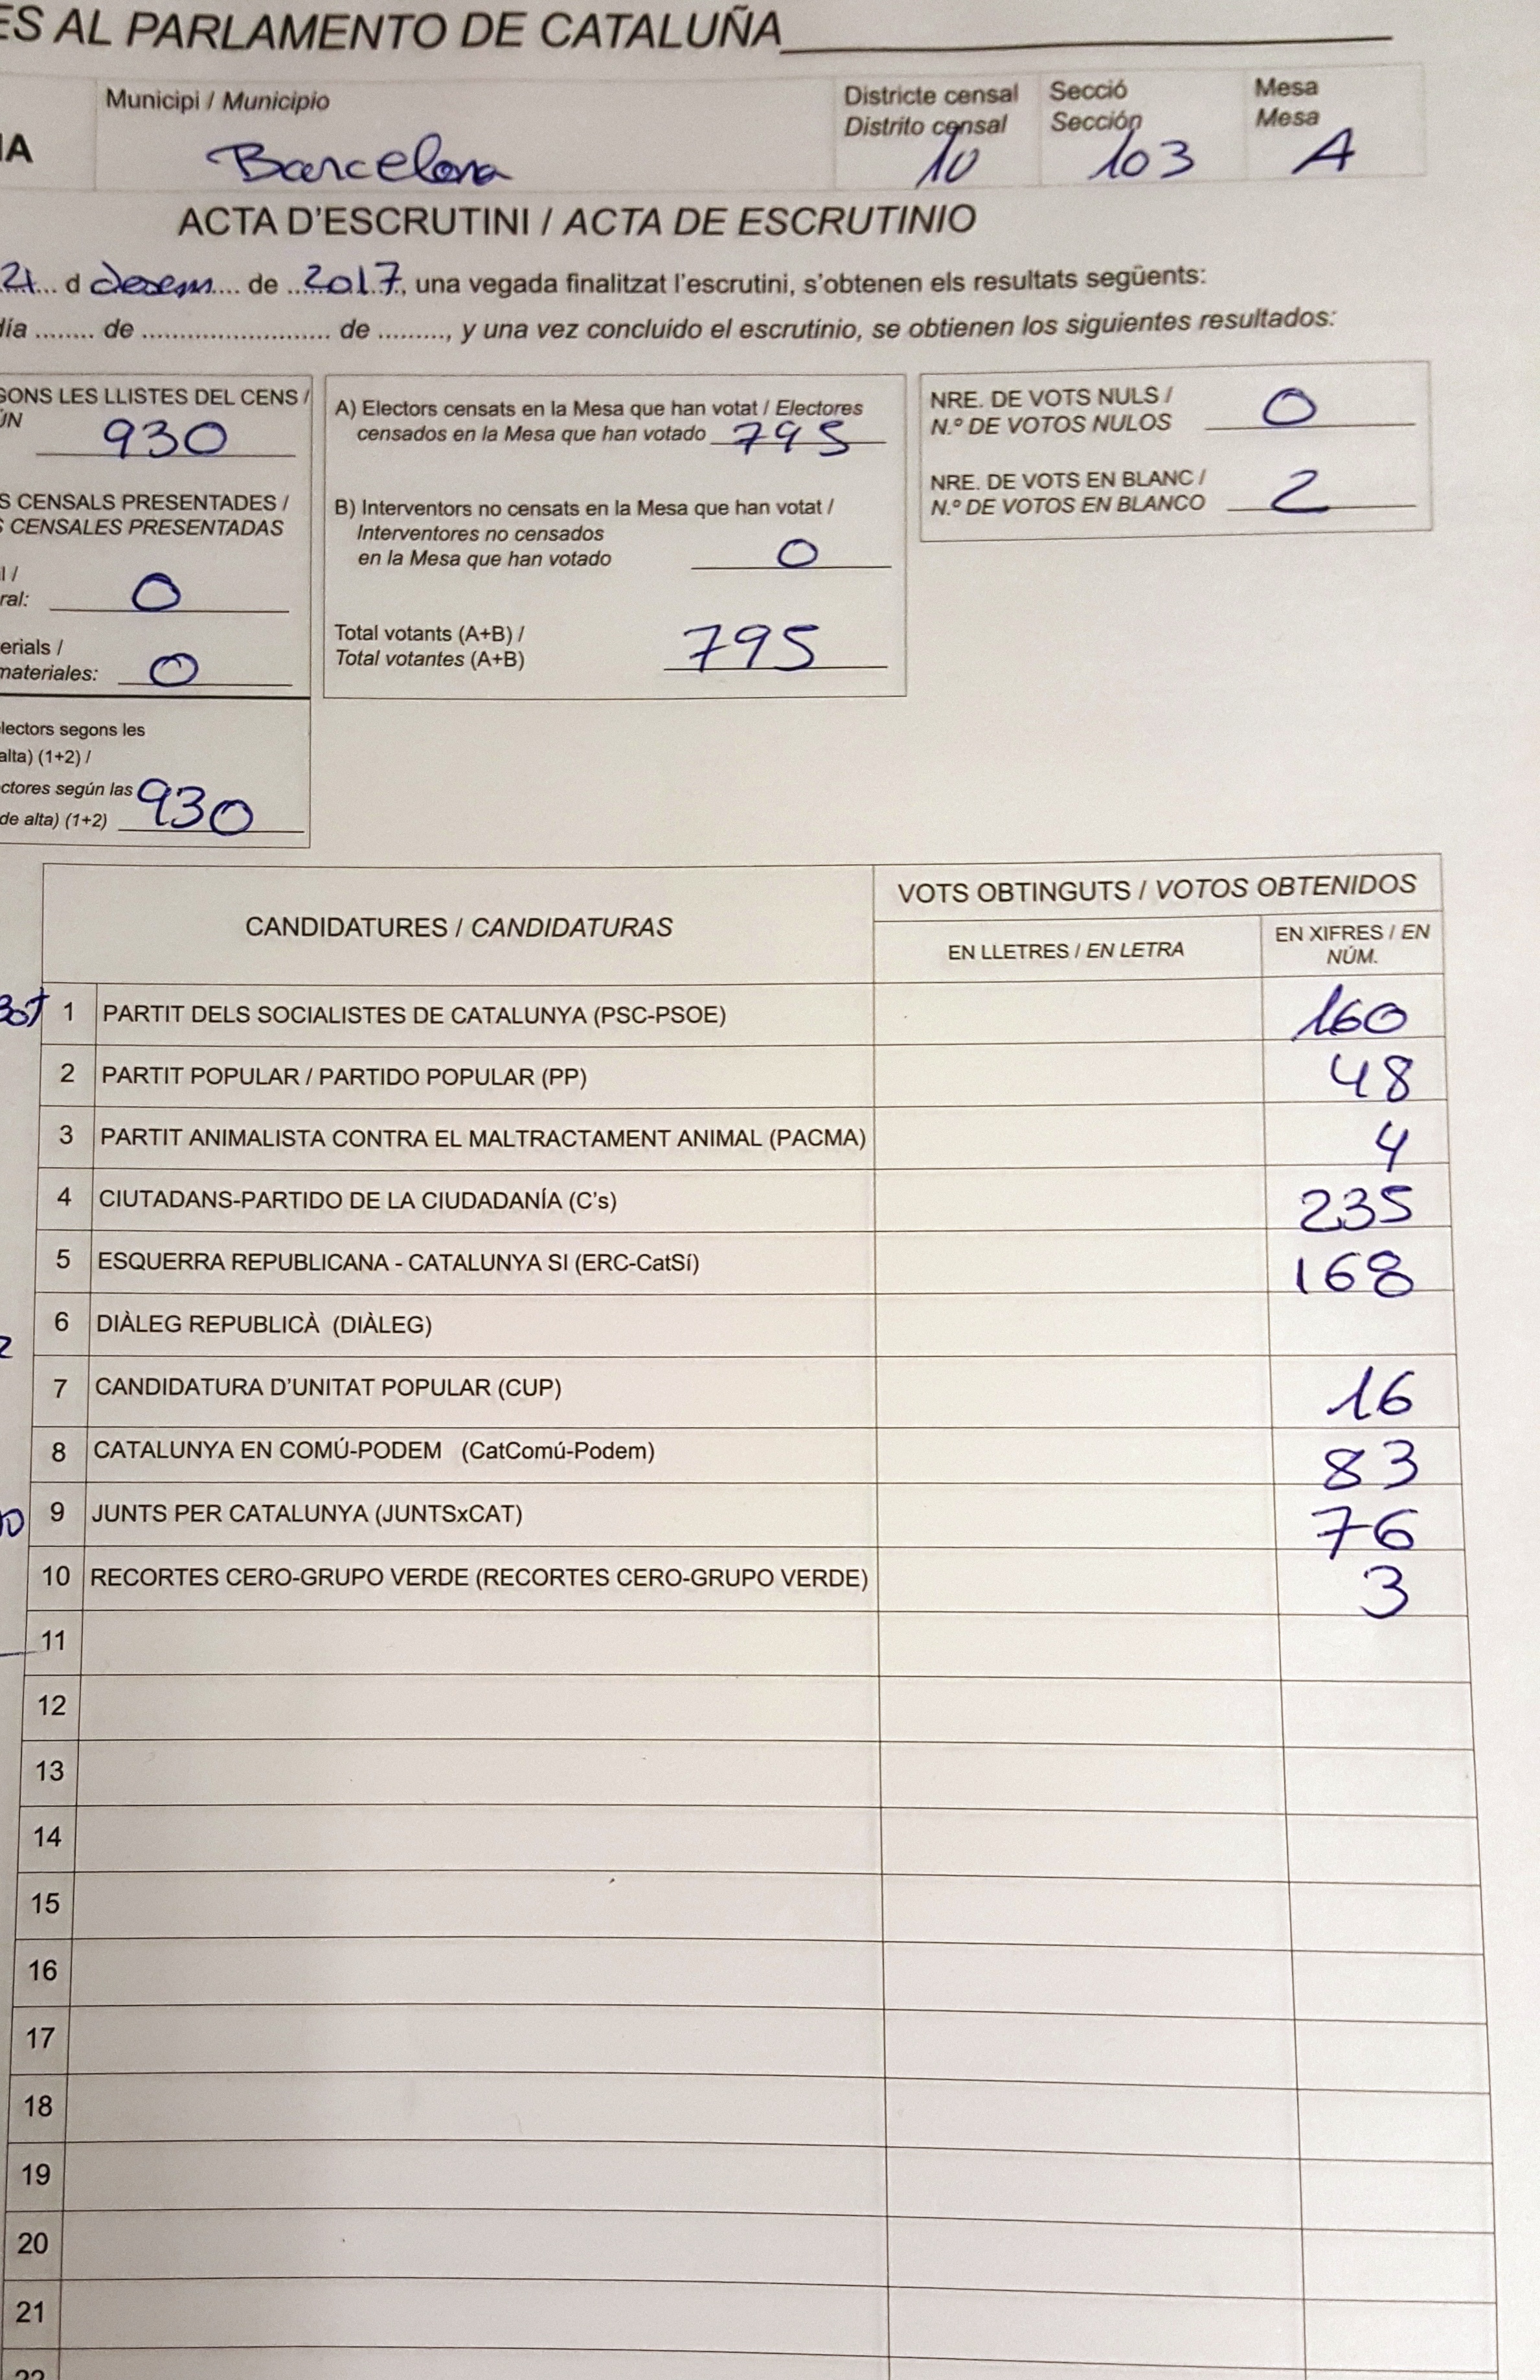 ES AL PARLAMENTO DE CATALUÑA
Municipi / Municipio
Districte censal
Distrito censal
Secció
Sección
Mesa
Mesa
IA
Barcelona
10
103
A
ACTA D'ESCRUTINI / ACTA DE ESCRUTINIO
21 d desem de 2017, una vegada finalitzat l'escrutini, s'obtenen els resultats següents:
día ........ de ............................ de ........., y una vez concluido el escrutinio, se obtienen los siguientes resultados:
GONS LES LLISTES DEL CENS /
ÚN
930
S CENSALS PRESENTADES /
S CENSALES PRESENTADAS
l /
ral: 0
erials /
materiales: 0
lectors segons les
alta) (1+2) /
ctores según las
de alta) (1+2) 930
A) Electors censats en la Mesa que han votat / Electores
censados en la Mesa que han votado 795
B) Interventors no censats en la Mesa que han votat /
Interventores no censados
en la Mesa que han votado 0
Total votants (A+B) /
Total votantes (A+B) 795
NRE. DE VOTS NULS /
N.º DE VOTOS NULOS 0
NRE. DE VOTS EN BLANC /
N.º DE VOTOS EN BLANCO 2
CANDIDATURES / CANDIDATURAS
VOTS OBTINGUTS / VOTOS OBTENIDOS
EN LLETRES / EN LETRA
EN XIFRES / EN
NÚM.
1 PARTIT DELS SOCIALISTES DE CATALUNYA (PSC-PSOE) 160
2 PARTIT POPULAR / PARTIDO POPULAR (PP) 48
3 PARTIT ANIMALISTA CONTRA EL MALTRACTAMENT ANIMAL (PACMA) 4
4 CIUTADANS-PARTIDO DE LA CIUDADANÍA (C's) 235
5 ESQUERRA REPUBLICANA - CATALUNYA SI (ERC-CatSí) 168
6 DIÀLEG REPUBLICÀ (DIÀLEG)
7 CANDIDATURA D'UNITAT POPULAR (CUP) 16
8 CATALUNYA EN COMÚ-PODEM (CatComú-Podem) 83
9 JUNTS PER CATALUNYA (JUNTSxCAT) 76
10 RECORTES CERO-GRUPO VERDE (RECORTES CERO-GRUPO VERDE) 3
11
12
13
14
15
16
17
18
19
20
21
22